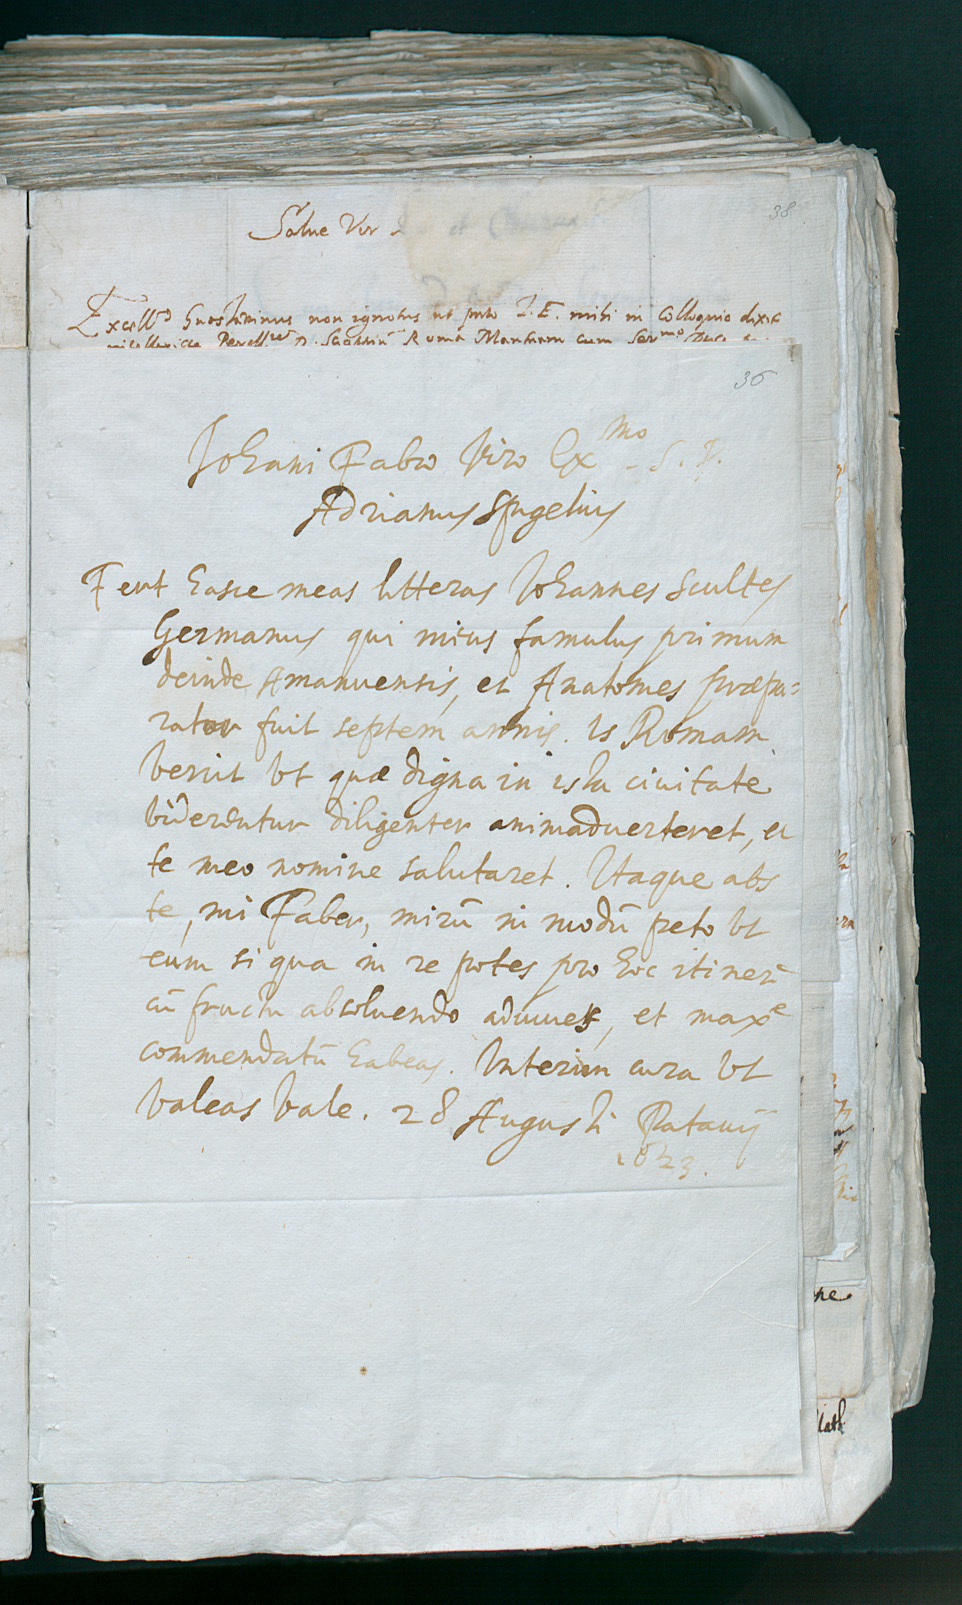 38
Salue Vir
non ignotus ut puto mihi in Colloquio dixit
Roma Mantuam cum Ser.mo Duce
36
Johani Fabro Viro Exmo S. P.
Adrianus Spigelius
Fert hasce meas litteras Johannes Scultes
Germanus qui meus famulus primum
deinde Amanuensis, et Anatomes præpa=
rator fuit septem annis. Is Romam
venit vt quæ digna in ista ciuitate
viderentur diligenter animaduerteret, et
te meo nomine salutaret. Itaque abs
te, mi Faber, mirū in modū peto vt
eum si qua in re potes pro hoc itinere
cū fructu absoluendo adiuues, et maxe
commendatū habeas. Interim cura vt
valeas Vale. 28 Augusti Patauij
1623.